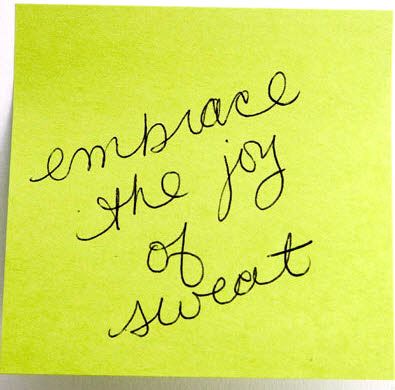 embrace
the joy
of
sweat